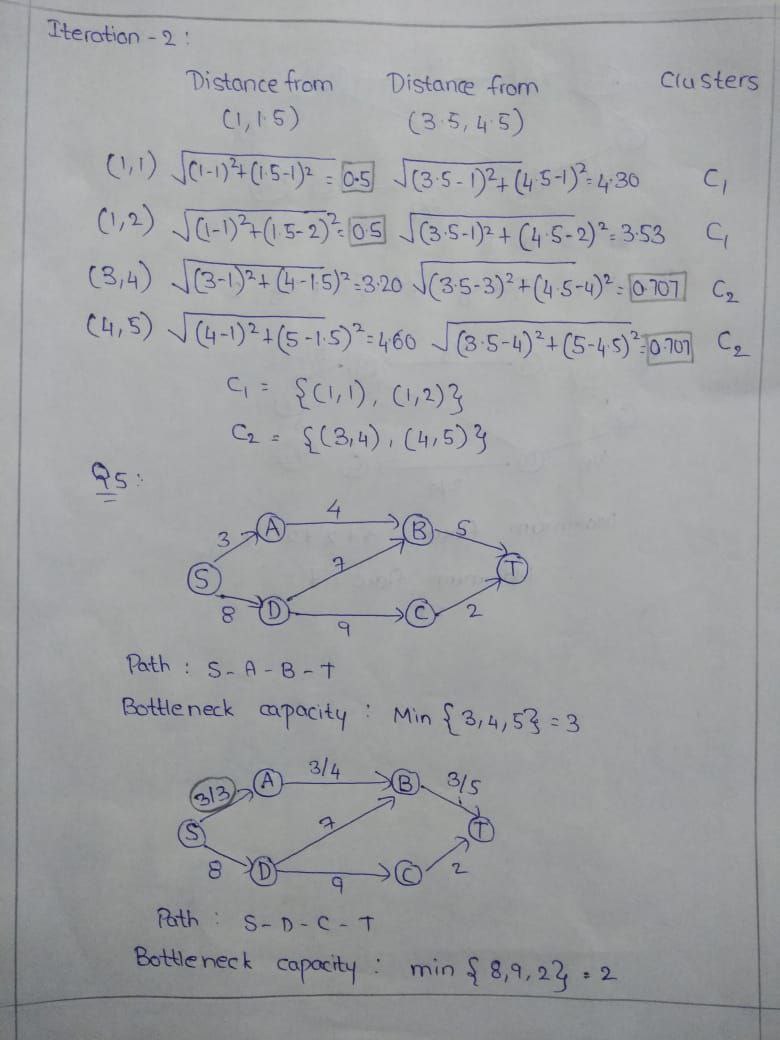 Iteration - 2 :
Distance from Distance from Clusters
(1, 1.5) (3.5, 4.5)
(1,1) √(1-1)²+(1.5-1)² = 0.5 √(3.5-1)²+(4.5-1)² = 4.30 C₁
(1,2) √(1-1)²+(1.5-2)² = 0.5 √(3.5-1)²+(4.5-2)² = 3.53 C₁
(3,4) √(3-1)²+(4-1.5)² = 3.20 √(3.5-3)²+(4.5-4)² = 0.707 C₂
(4,5) √(4-1)²+(5-1.5)² = 4.60 √(3.5-4)²+(5-4.5)² = 0.707 C₂
C₁ = {(1,1), (1,2)}
C₂ = {(3,4), (4,5)}
Q5:
4
3 A B 5
7
S T
8 D C 2
9
Path : S-A-B-T
Bottleneck capacity : Min {3,4,5} = 3
3/4
3/3 A B 3/5
7
S T
8 D C 2
9
Path : S-D-C-T
Bottleneck capacity : min {8,9,2} = 2